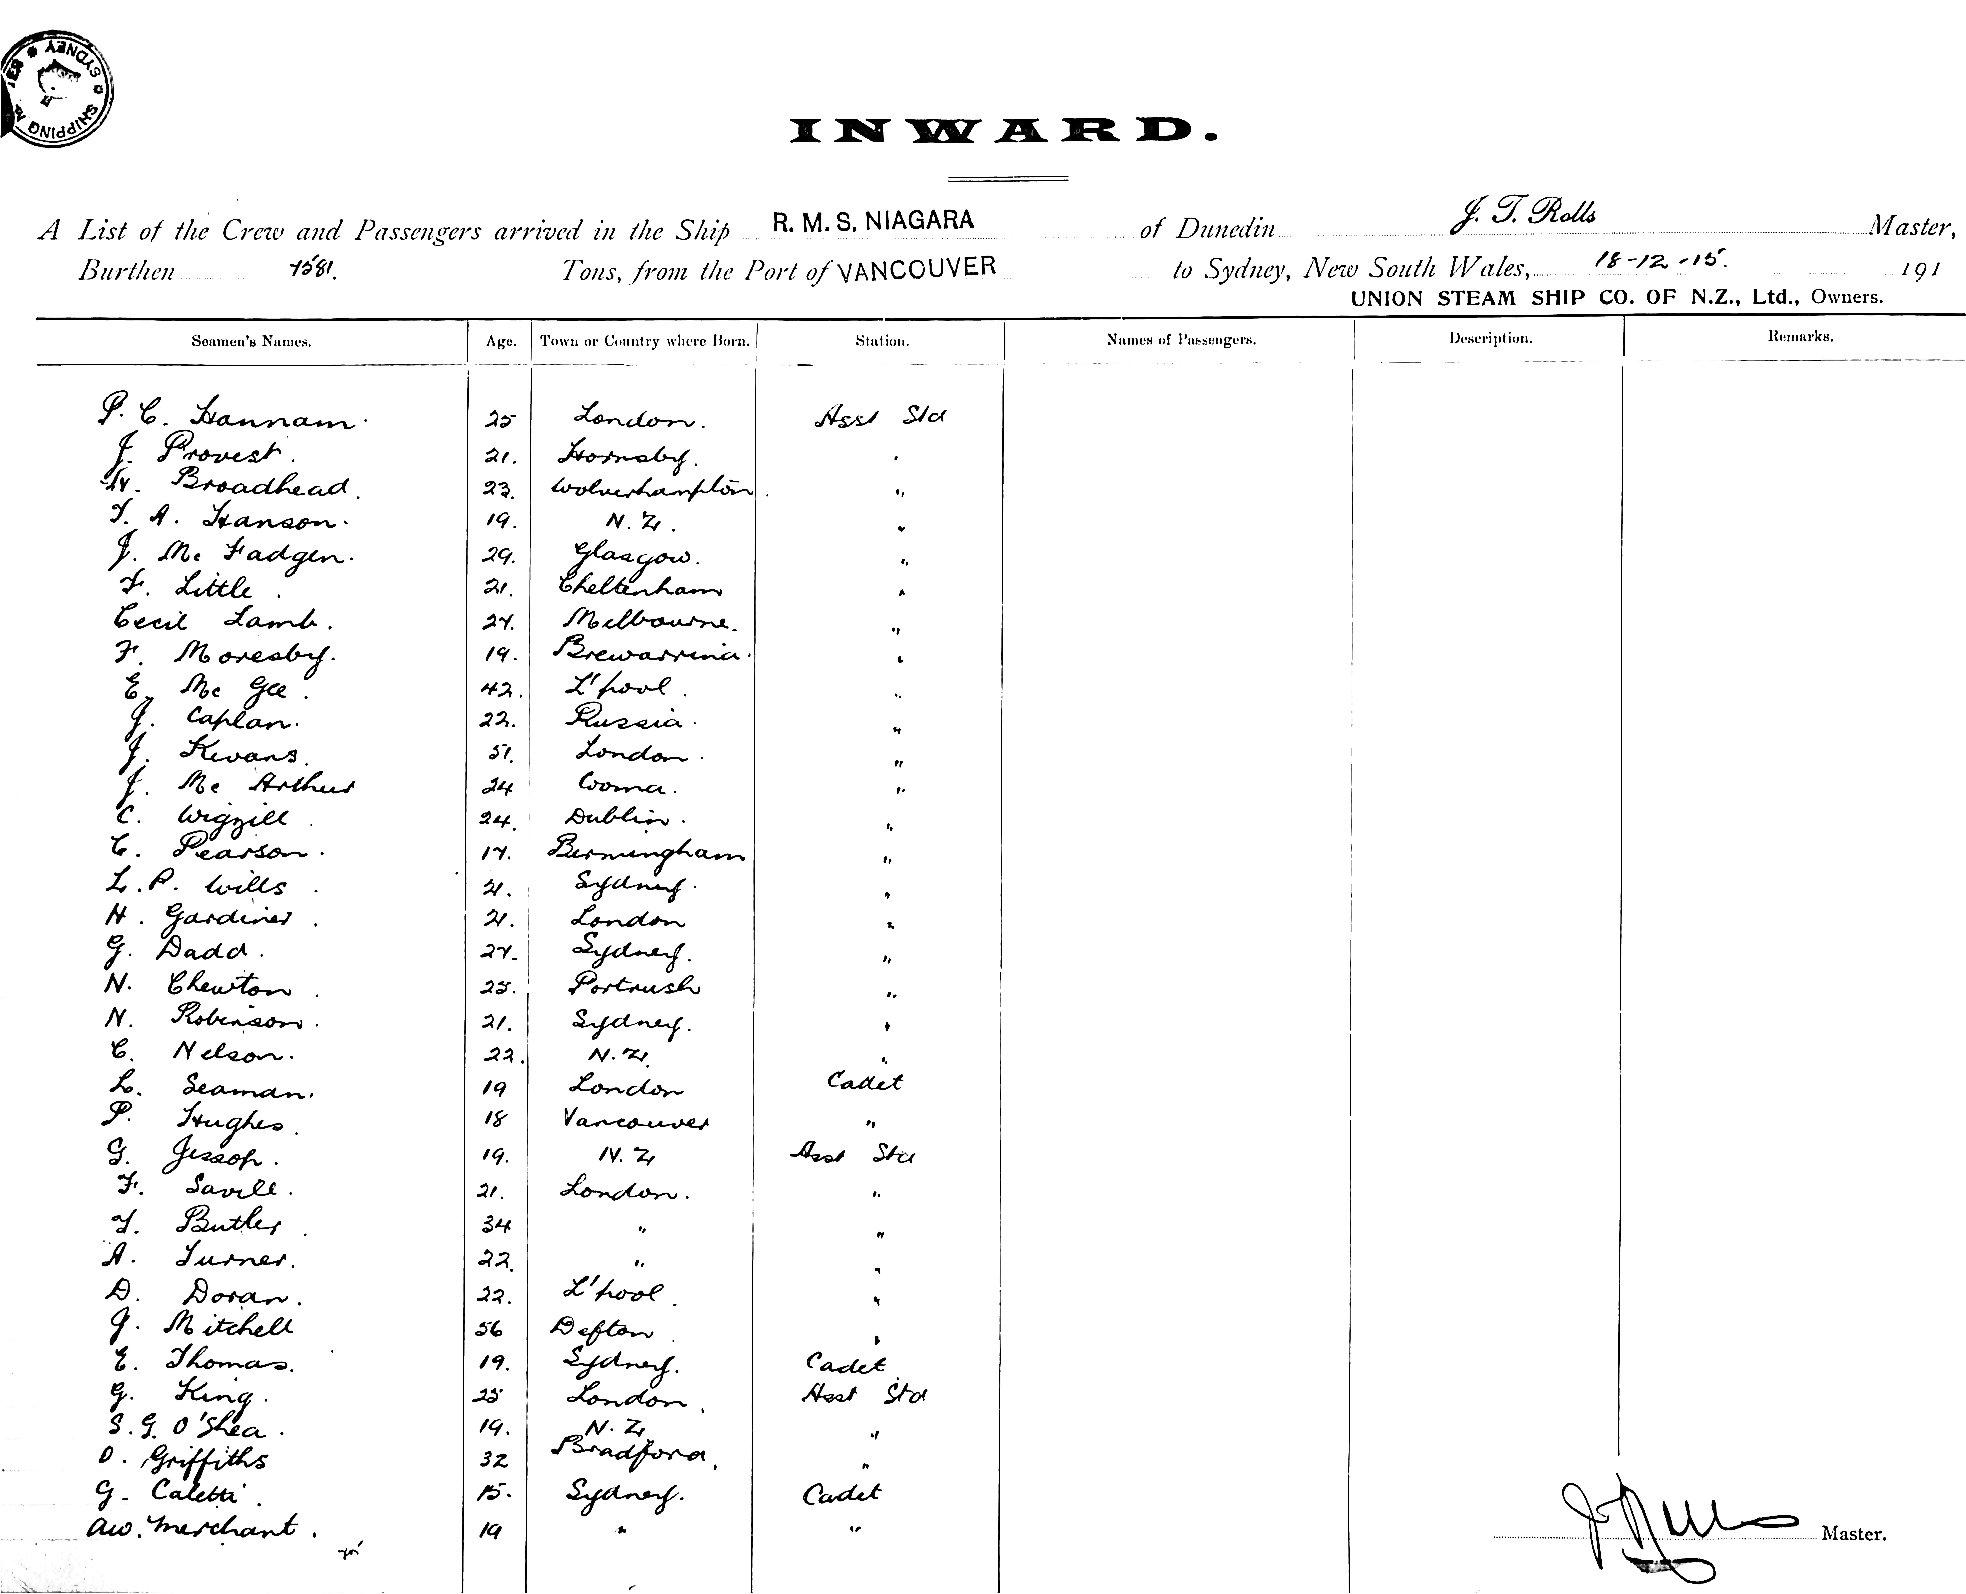 SHIPPING MASTER SYDNEY
INWARD.
A List of the Crew and Passengers arrived in the Ship R. M. S. NIAGARA of Dunedin J. T. Rolls Master,
Burthen 7581. Tons, from the Port of VANCOUVER to Sydney, New South Wales, 18-12-15. 191
UNION STEAM SHIP CO. OF N.Z., Ltd., Owners.
Seamen's Names. Age. Town or Country where Born. Station. Names of Passengers. Description. Remarks.
P. C. Hannam. 25 London. Asst Std
J. Provest. 21. Hornsby. "
W. Broadhead. 23. Wolverhampton. "
T. A. Hanson. 19. N. Z. "
J. Mc Fadgen. 29. Glasgow. "
F. Little. 21. Cheltenham "
Cecil Lamb. 27. Melbourne. "
F. Moresby. 19. Brewarrina. "
E. Mc Gee. 42. L'pool. "
J. Caplan. 22. Russia. "
J. Kevans. 51. London. "
J. Mc Arthur 24 Cooma. "
C. Wigzill. 24. Dublin. "
C. Pearson. 17. Birmingham "
L. P. Wills. 21. Sydney. "
H. Gardiner. 21. London "
G. Dadd. 27. Sydney. "
N. Chewton. 25. Portrush "
N. Robinson. 21. Sydney. "
C. Nelson. 22. N. Z. "
L. Seaman. 19 London Cadet
P. Hughes. 18 Vancouver "
G. Jessop. 19. N. Z Asst Std
F. Savill. 21. London. "
T. Butler. 34 " "
A. Turner. 22. " "
D. Doran. 22. L'pool. "
J. Mitchell 56 Defton. "
E. Thomas. 19. Sydney. Cadet
G. King. 25 London. Asst Std
S. G. O'Shea. 19. N. Z "
D. Griffiths 32 Bradford. "
G. Caletti. 15. Sydney. Cadet
AW. Merchant. 19 " "
J Rolls Master.